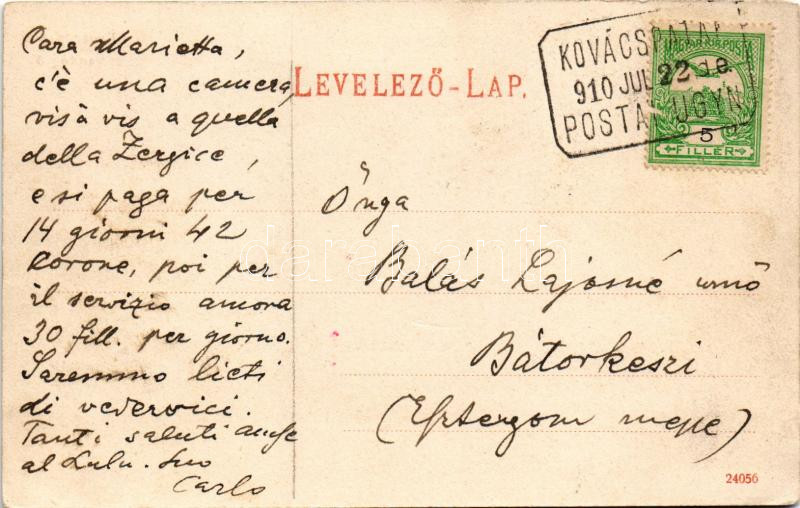 Cara Marietta,
c'è una camera,
vis à vis a quella
della Zergice,
e si paga per
14 giorni 42
corone, poi per
il servizio amora
30 fill. per giorno.
Saremmo lieti
di vedervici.
Tanti saluti anche
al Lulu. Suo
Carlo
LEVELEZŐ-LAP.
KOVÁCSPATAK
910 JUL 22 de.
POSTAI ÜGYN
MAGYAR KIR. POSTA
5
FILLÉR
Őnga
Balás Lajosné úrnő
Bátorkeszi
(Esztergom megye)
darabanth
24056